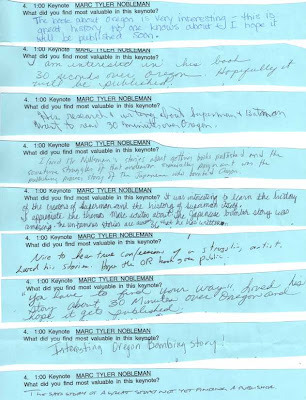 4. 1:00 Keynote MARC TYLER NOBLEMAN
What did you find most valuable in this keynote?
The book about Oregon is very interesting - this is
great history no one knows about & I hope it
will be published soon.
4. 1:00 Keynote MARC TYLER NOBLEMAN
What did you find most valuable in this keynote?
I am interested in his book
30 seconds over Oregon. Hopefully it
will be published.
4. 1:00 Keynote MARC TYLER NOBLEMAN
What did you find most valuable in this keynote?
His research & writing about Superman & Batman
Want to read 30 minutes over Oregon.
4. 1:00 Keynote MARC TYLER NOBLEMAN
What did you find most valuable in this keynote?
I loved Mr. Nobleman's stories about getting books published and the
by the Japanese who bombed Oregon
4. 1:00 Keynote MARC TYLER NOBLEMAN
What did you find most valuable in this keynote? It was interesting to learn the history
of the history of Superman and the history of superman story.
I appreciate the themes Marc writes about the Japanese bomber story was
amazing. the unknown stories are that he has written.
4. 1:00 Keynote MARC TYLER NOBLEMAN
What did you find most valuable in this keynote?
Nice to hear true confessions of a tragic artist.
Loved his stories. Hope the OR book goes public.
4. 1:00 Keynote MARC TYLER NOBLEMAN
What did you find most valuable in this keynote?
"You have to find your way". Loved his
story about 30 Minutes over Oregon and
hope it gets published.
4. 1:00 Keynote MARC TYLER NOBLEMAN
What did you find most valuable in this keynote?
Interesting Oregon Bombing story!
4. 1:00 Keynote MARC TYLER NOBLEMAN
What did you find most valuable in this keynote?
THE SAD STORY OF A GREAT STORY NOT FINDING A PUBLISHER